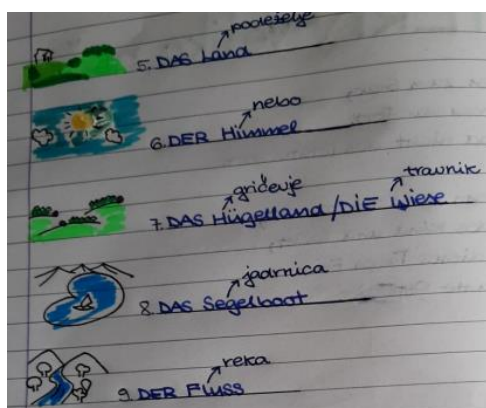 podeželje
5. DAS Land
nebo
6. DER Himmel
gričevje travnik
7. DAS Hügelland / DIE Wiese
jadrnica
8. DAS Segelboot
reka
9. DER Fluss